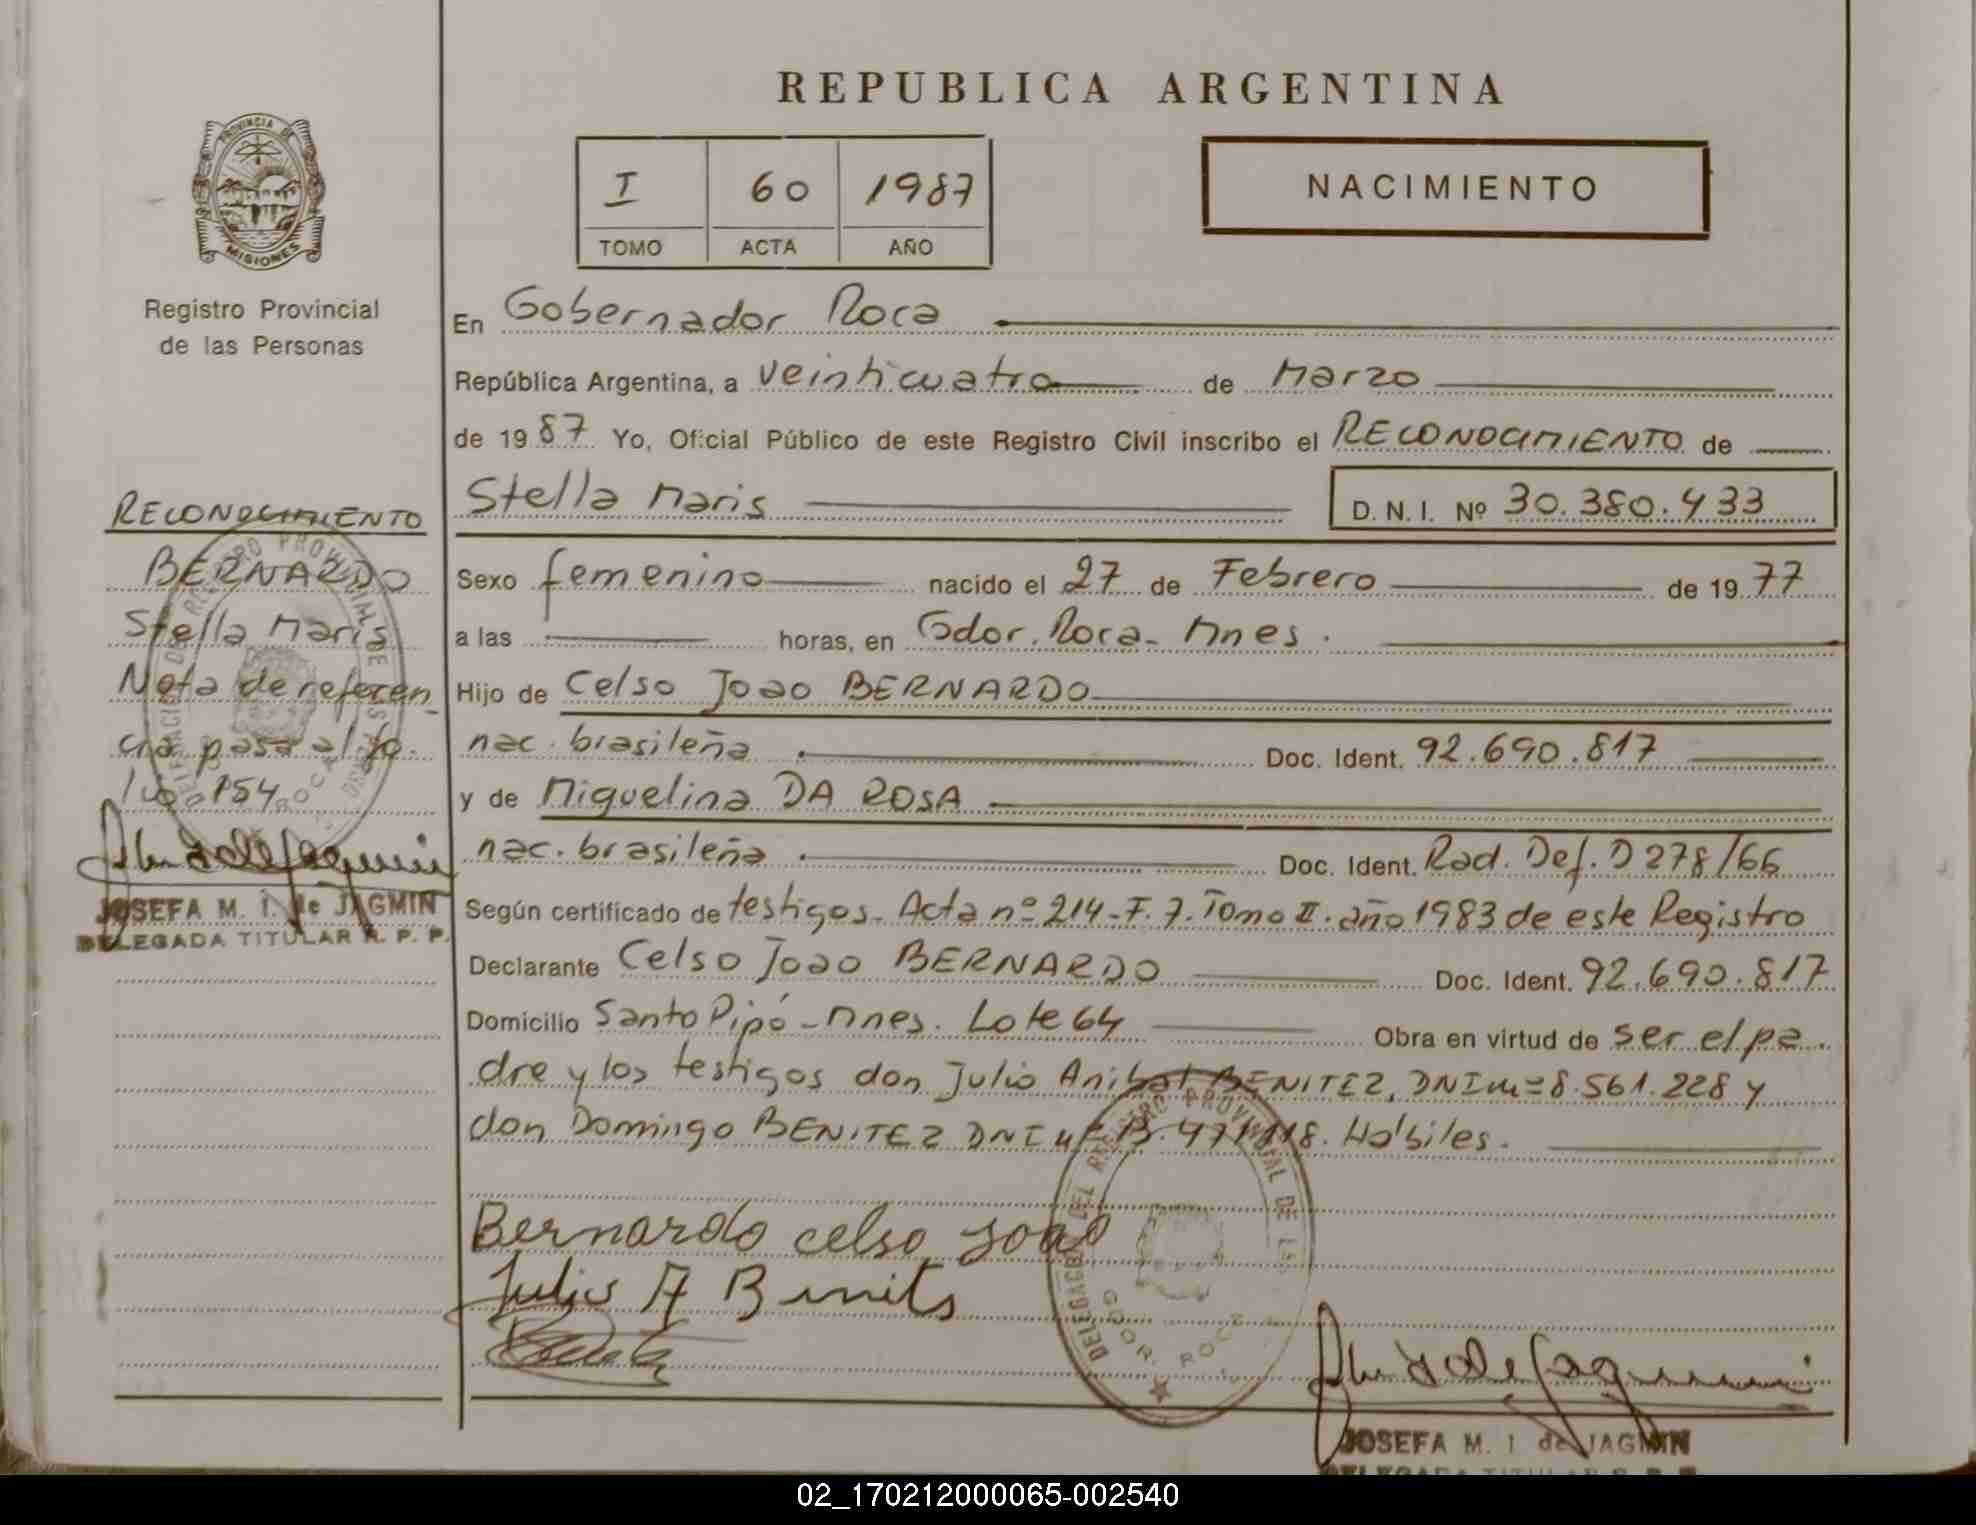 REPUBLICA ARGENTINA
PROVINCIA DE
MISIONES
Registro Provincial
de las Personas
I 60 1987
TOMO ACTA AÑO
NACIMIENTO
En Gobernador Roca
República Argentina, a veinticuatro de Marzo
de 19 87 Yo, Oficial Público de este Registro Civil inscribo el RECONOCIMIENTO de
Stella Maris D. N. I. Nº 30.380.433
Sexo femenino nacido el 27 de Febrero de 19 77
a las horas, en Gdor. Roca - Mnes.
Hijo de Celso Joao BERNARDO
nac. brasileña Doc. Ident. 92.690.817
y de Miguelina DA ROSA
nac. brasileña Doc. Ident. Rad. Def. D 278/66
Según certificado de testigos. Acta nº 214-F. 7. Tomo II. año 1983 de este Registro
Declarante Celso Joao BERNARDO Doc. Ident. 92.690.817
Domicilio Santo Pipó - Mnes. Lote 64 Obra en virtud de ser el pa
dre y los testigos don Julio Anibal BENITEZ, DNI nº 8.561.228 y
don Domingo BENITEZ DNI Hábiles.
Bernardo celso Joao
Julio A Benits
DELEGACION DEL REGISTRO PROVINCIAL DE LAS
GDOR. ROCA
JOSEFA M. I. de JAGMIN
DELEGADA TITULAR R. P. P.
RECONOCIMIENTO
BERNARDO
Stella Maris
Nota de referen_
cia pasa al fo.
lio 154
DELEGACION DEL REGISTRO PROVINCIAL DE LAS PERSONAS
ROCA
JOSEFA M. I. de JAGMIN
DELEGADA TITULAR R. P. P.
02_170212000065-002540